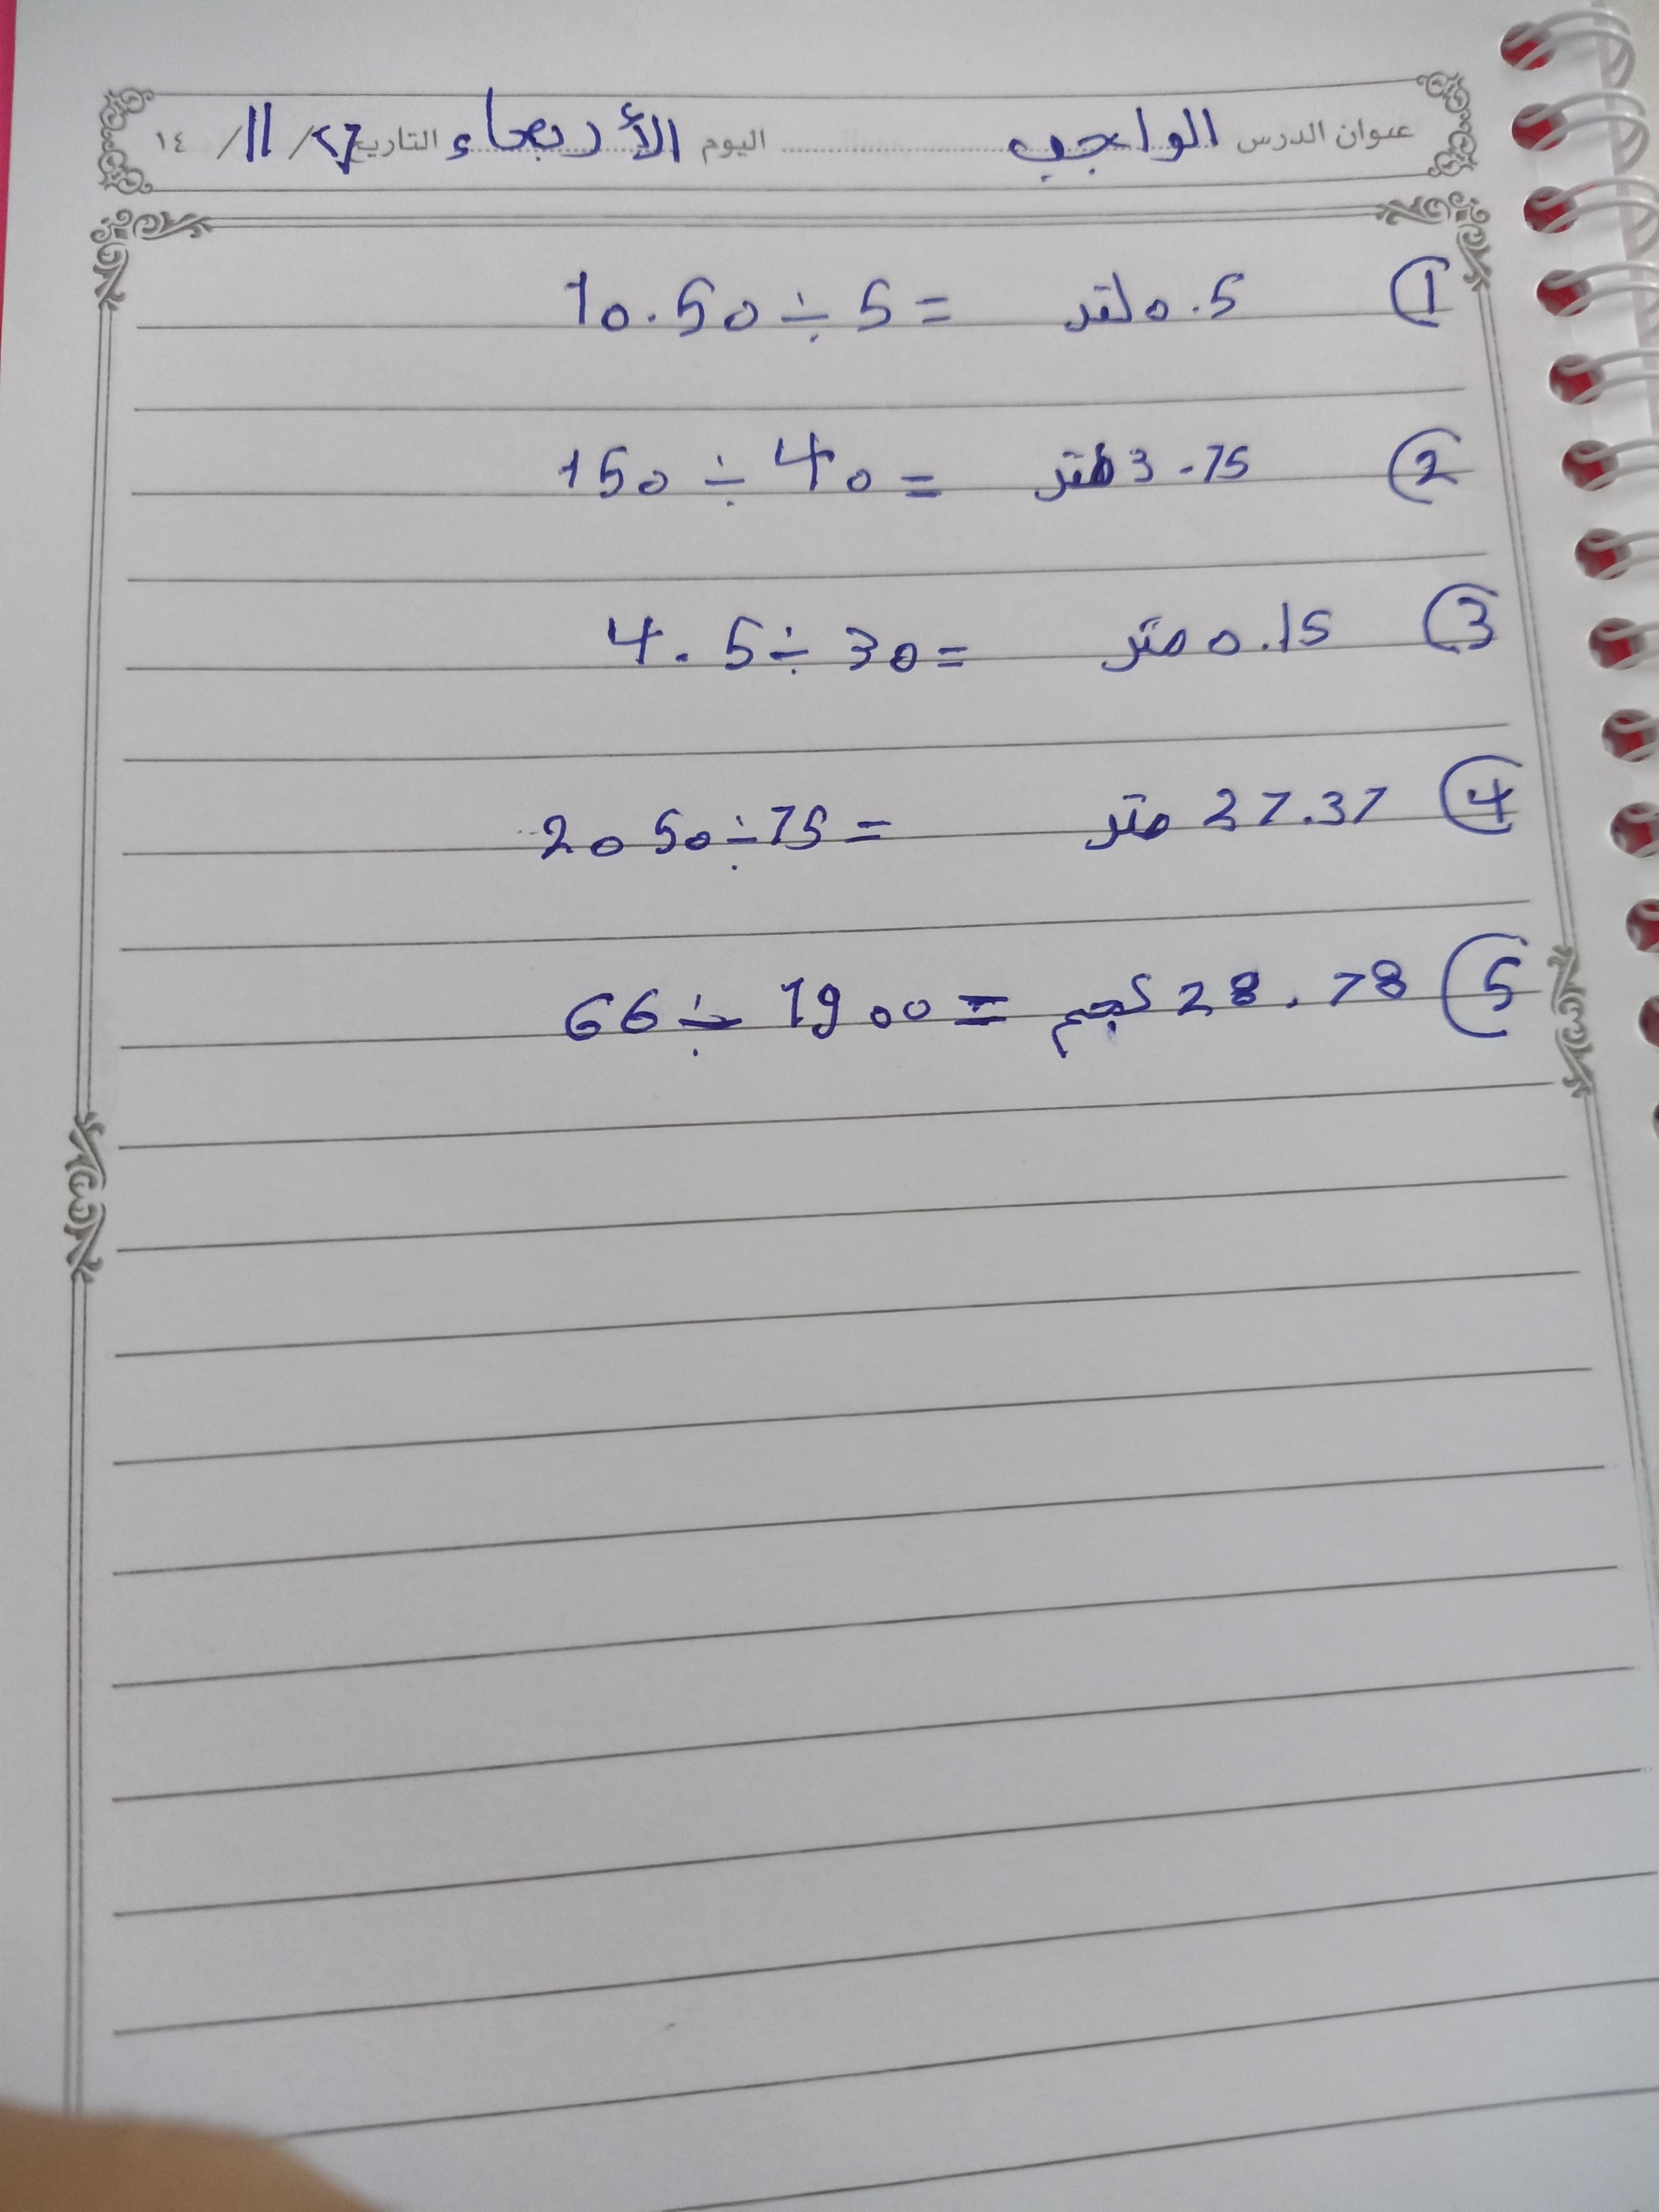 عنوان الدرس الواجب اليوم الأربعاء التاريخ ٢٧ / 11 / ١٤
① 10.50 ÷ 5 = 0.5 لتر
② 150 ÷ 40 = 3.75 متر
③ 4.5 ÷ 30 = 0.15 متر
④ 2050 ÷ 75 = 27.37 متر
⑤ 66 ÷ 1900 = 28.78 كجم